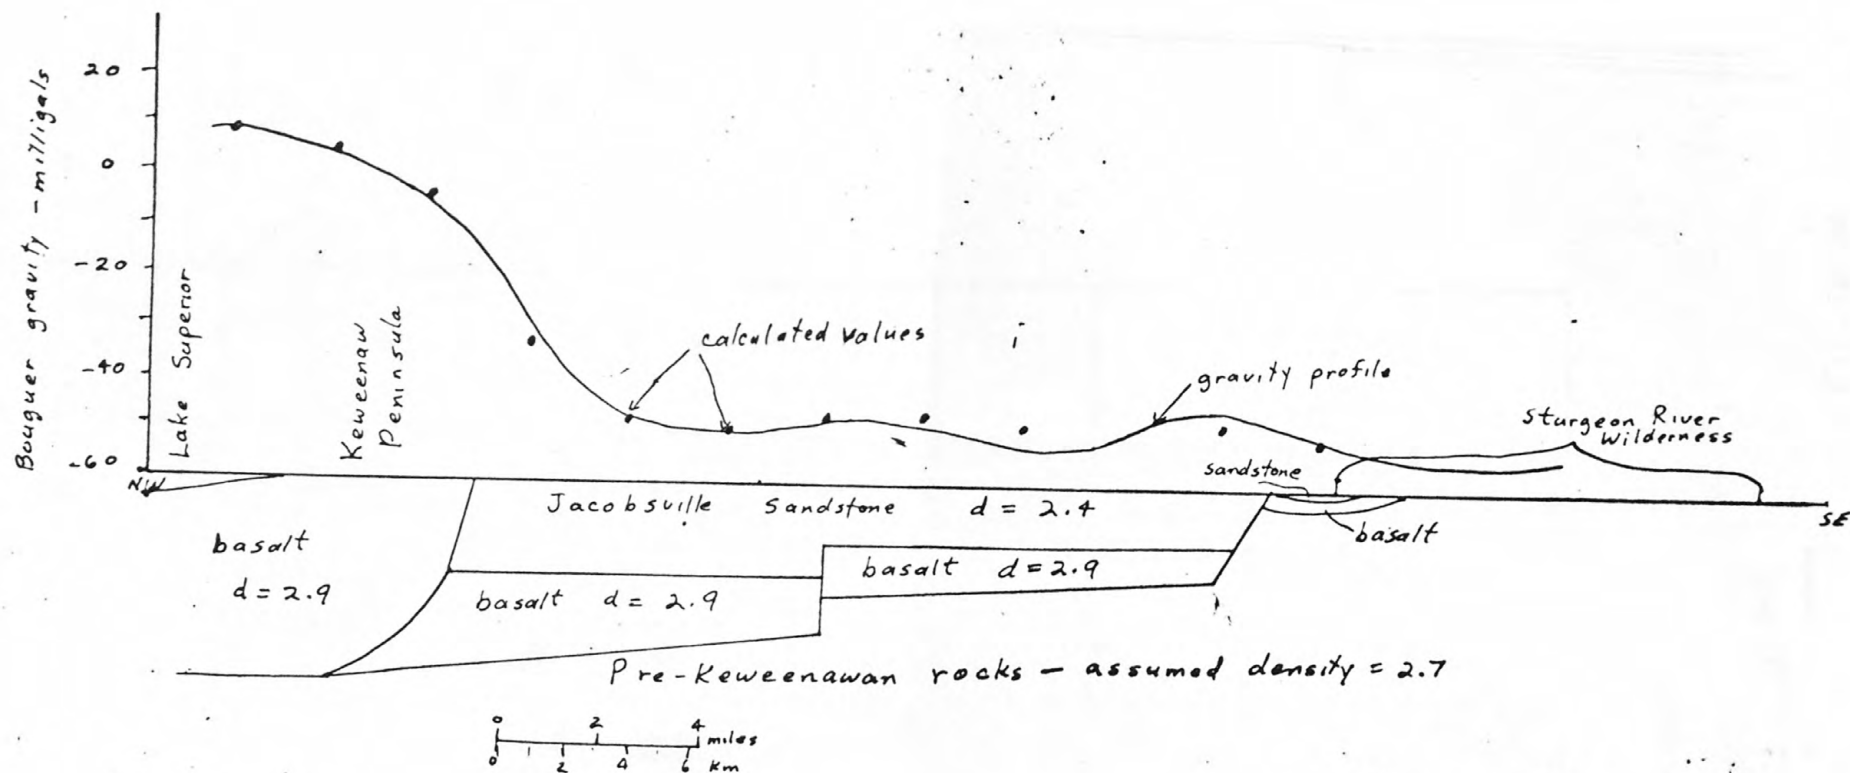 Bouguer gravity - milligals
20
0
-20
-40
-60
NW
Lake Superior
Keweenaw
Peninsula
calculated values
gravity profile
Sturgeon River
Wilderness
sandstone
basalt
SE
Jacobsville Sandstone d = 2.4
basalt
d = 2.9
basalt d = 2.9
basalt d = 2.9
Pre-Keweenawan rocks - assumed density = 2.7
0 2 4 miles
0 2 4 6 km